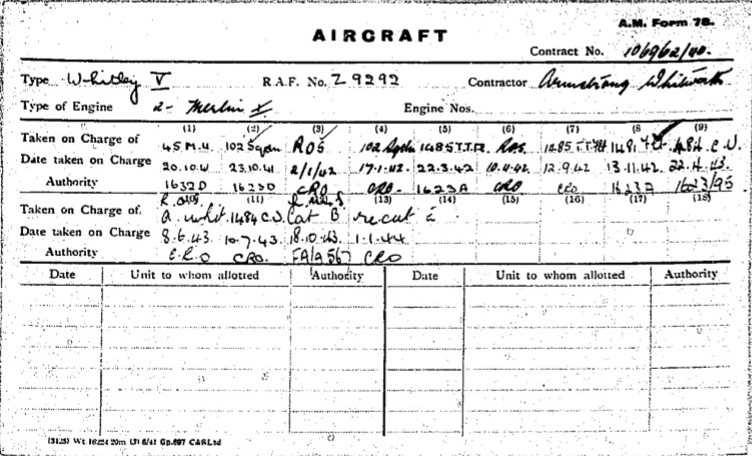 A.M. Form 78.
AIRCRAFT
Contract No. 106962/40.
Type Whitley V R.A.F. No. Z 9292 Contractor Armstrong Whitworth
Type of Engine 2- Merlin X Engine Nos.
(1) (2) (3) (4) (5) (6) (7) (8) (9)
Taken on Charge of 45 M.U. 102 Sqdn ROS 102 Sqdn ROS 1481
Date taken on Charge 20.10.41 23.10.41 2/1/42 17.1.42 22.3.42 10.4.42 12.9.42 13.11.42 22.4.43.
Authority 1632D 1623D CRO CRO. 1623A CRO CRO 1623A 1623/95
(11) (13) (14) (15) (16) (17) (18)
Taken on Charge of. a. whit. 1484 Cat B recat
Date taken on Charge 8.6.43. 10.7.43. 18.10.43. 1.1.44
Authority C.R.O CRO. CRO
Date Unit to whom allotted Authority Date Unit to whom allotted Authority